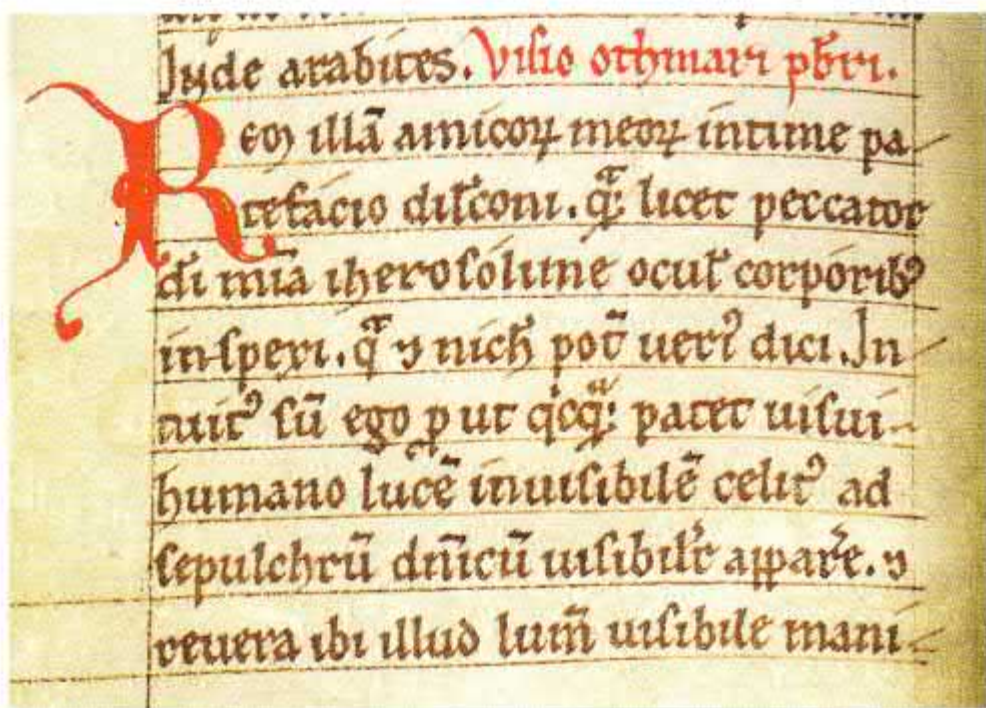 Jude arabites. Visio othmari pbri.
Reor illā amicoꝝ meoꝝ intime pa
tefacio disconi. licet peccator
di mīa iherosolime oculˀ corporibꝰ
inspexi. nich potˀ uerꝰ dici. In
tuitꝰ sū ego ꝓut patet uisui
humano lucē inuisibilē celitꝰ ad
sepulchrū dn̄icū uisibilˀr appare.
reuera ibi illud lum̄ uisibile mani